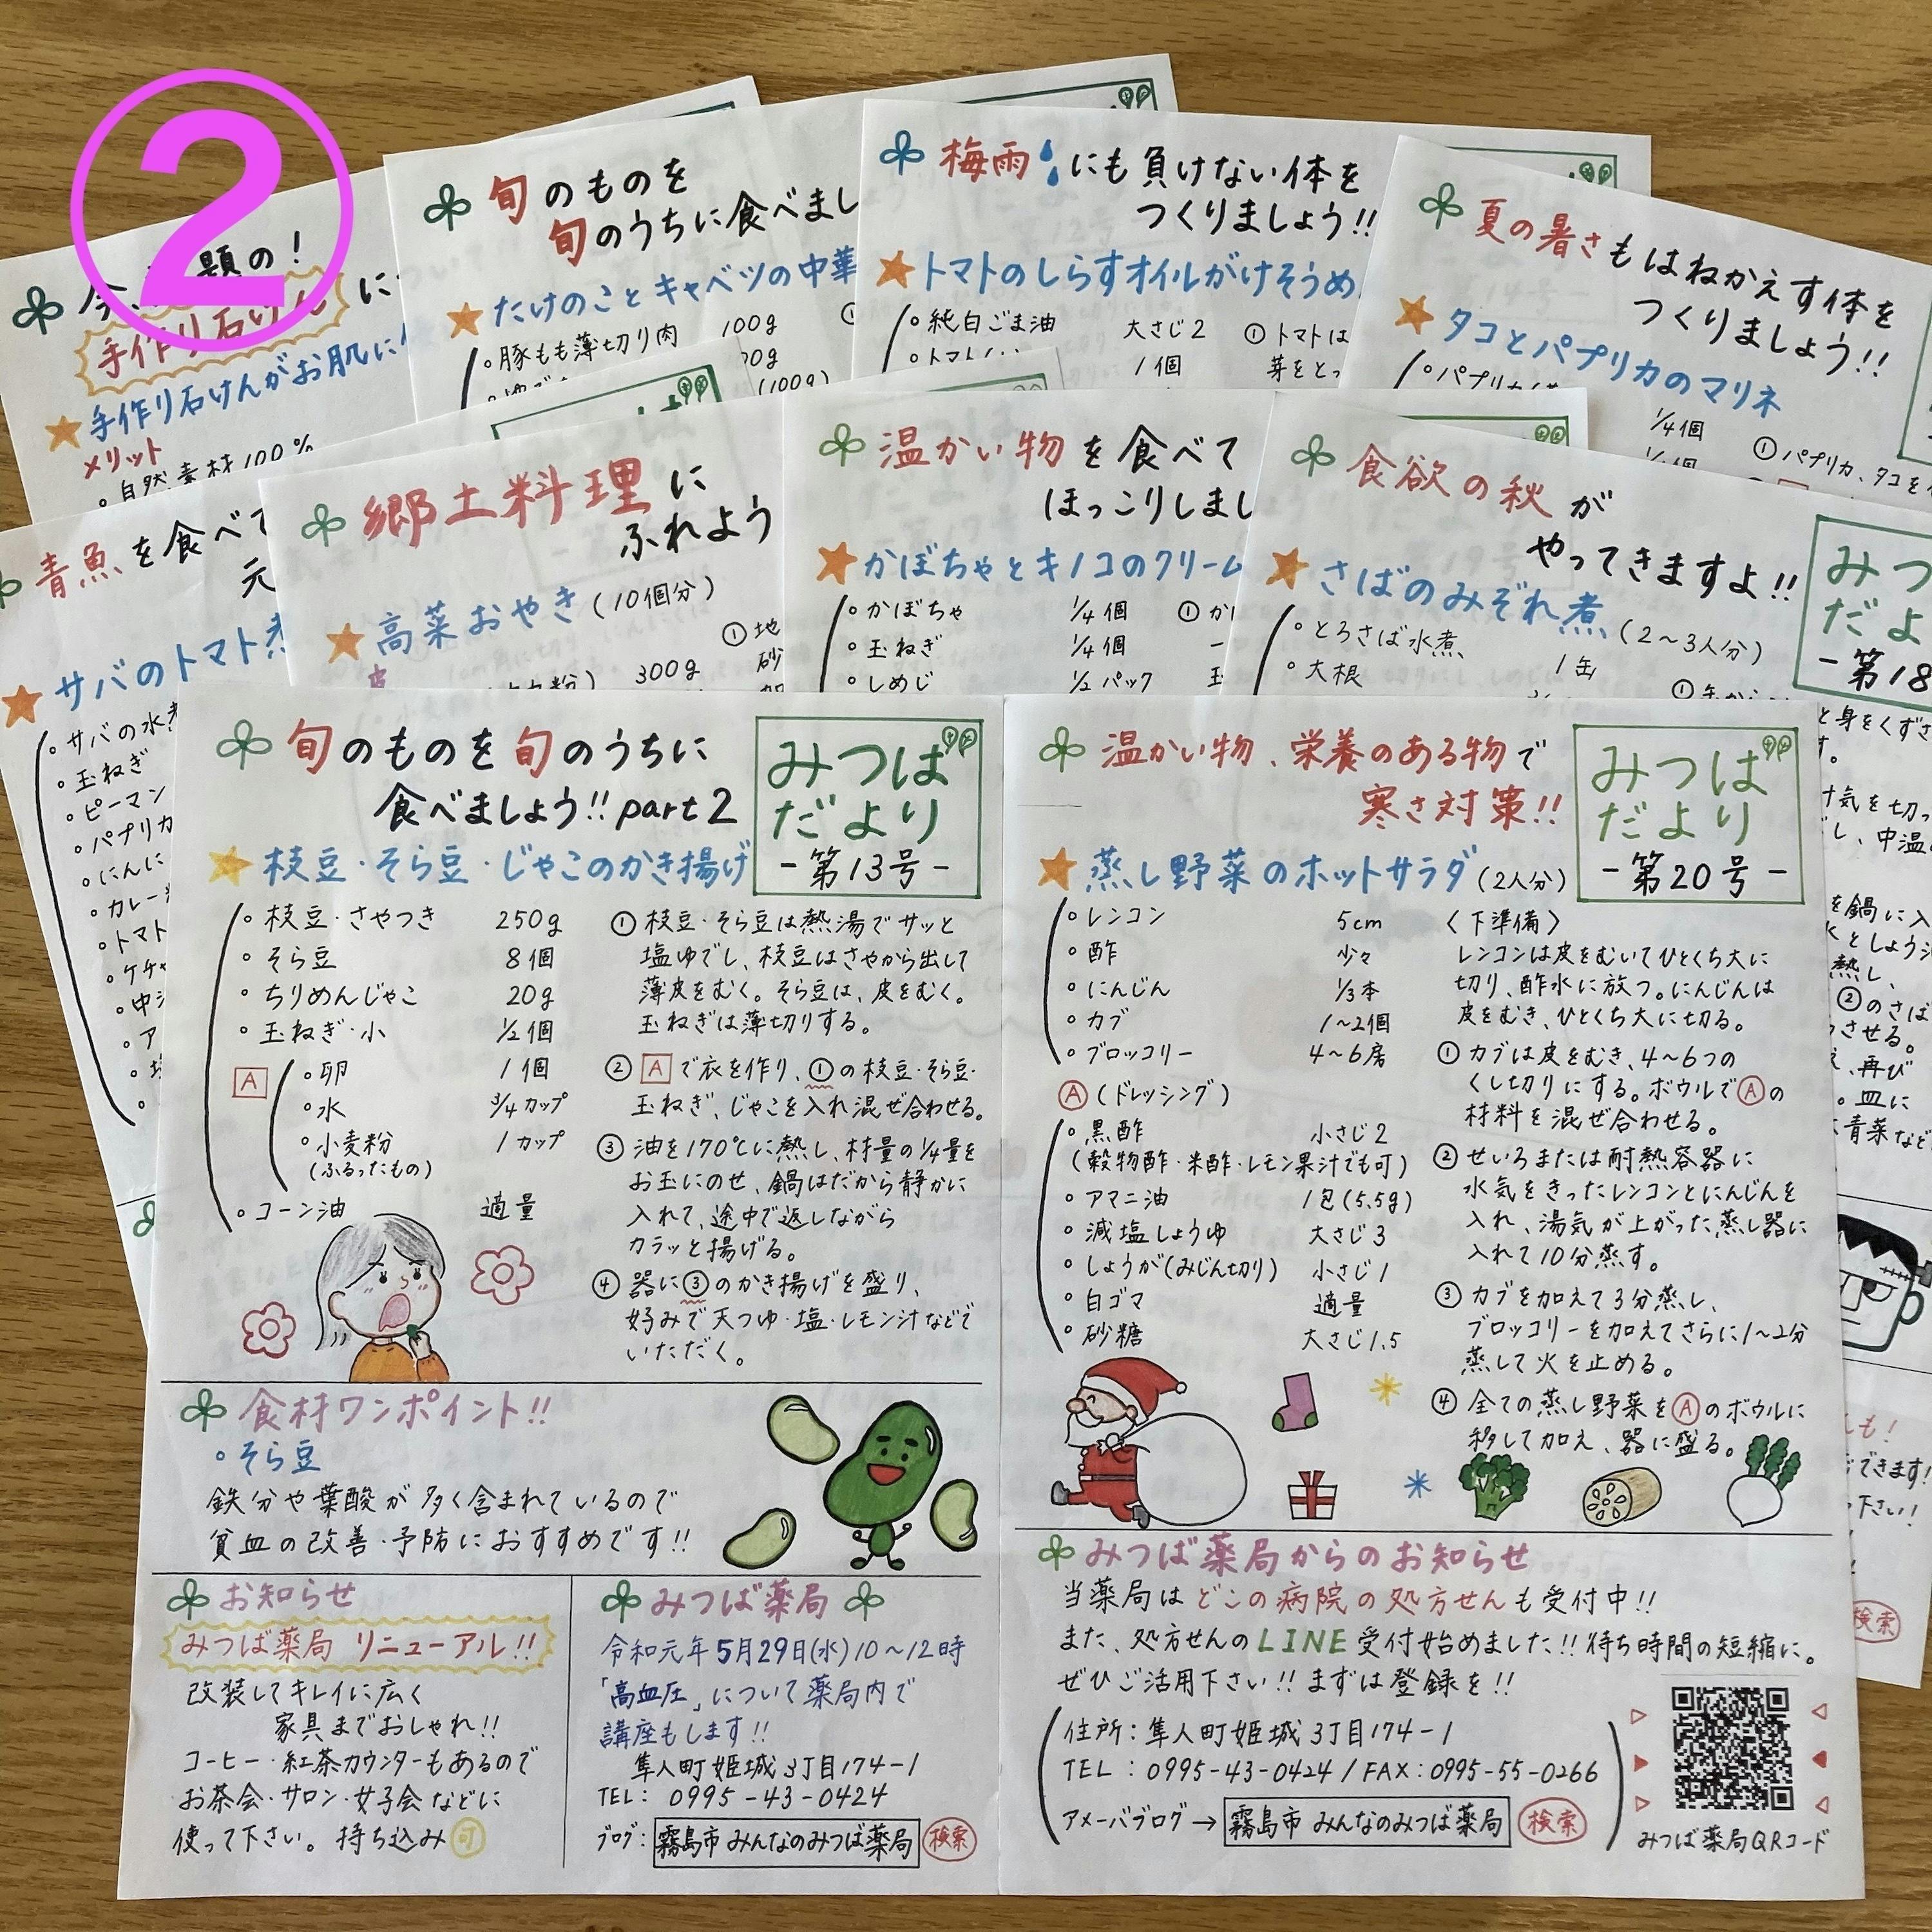 ②
今、話題の!
手作り石けん に
手作り石けんがお肌に
メリット
自然素材100%
旬のものを
旬のうちに食べまし
たけのことキャベツの中華
豚もも薄切り肉 100g
(100g)
梅雨にも負けない体を
つくりましょう!!
トマトのしらすオイルがけそうめ
純白ごま油 大さじ2
トマト 1個
① トマトは
芽をとっ
夏の暑さもはねかえす体を
つくりましょう!!
タコとパプリカのマリネ
パプリカ 1/4個
① パプリカ、タコを
青魚を食べて
元
サバのトマト煮
サバの水煮
玉ねぎ
ピーマン
パプリカ
にんに
カレー
トマト
ケチャ
郷土料理に
ふれよう
高菜おやき(10個分)
300g
① 地
砂
温かい物を食べて
ほっこりしまし
かぼちゃとキノコのクリーム
かぼちゃ 1/4個
玉ねぎ 1/4個
しめじ 1/2パック
① か
食欲の秋が
やってきますよ!!
さばのみぞれ煮(2〜3人分)
とろさば水煮 1缶
大根
みつ
だよ
-第18
旬のものを旬のうちに
食べましょう!! part2
みつば
だより
-第13号-
枝豆・そら豆・じゃこのかき揚げ
枝豆・さやつき 250g
そら豆 8個
ちりめんじゃこ 20g
玉ねぎ・小 1/2個
A
卵 1個
水 3/4カップ
小麦粉 1カップ
(ふるったもの)
コーン油 適量
① 枝豆・そら豆は熱湯でサッと
塩ゆでし、枝豆はさやから出して
薄皮をむく。そら豆は、皮をむく。
玉ねぎは薄切りする。
② Aで衣を作り、①の枝豆・そら豆・
玉ねぎ、じゃこを入れ混ぜ合わせる。
③ 油を170℃に熱し、材量の1/4量を
お玉にのせ、鍋はだから静かに
入れて、途中で返しながら
カラッと揚げる。
④ 器に③のかき揚げを盛り、
好みで天つゆ・塩・レモン汁などで
いただく。
食材ワンポイント!!
そら豆
鉄分や葉酸が多く含まれているので
貧血の改善・予防におすすめです!!
お知らせ
みつば薬局 リニューアル!!
改装してキレイに広く
家具までおしゃれ!!
コーヒー・紅茶カウンターもあるので
お茶会・サロン・女子会などに
使って下さい。持ち込み可
みつば薬局
令和元年5月29日(水)10〜12時
「高血圧」について薬局内で
講座もします!!
隼人町姫城3丁目174-1
TEL: 0995-43-0424
ブログ: 霧島市 みんなのみつば薬局 検索
温かい物、栄養のある物で
寒さ対策!!
みつば
だより
-第20号-
蒸し野菜のホットサラダ(2人分)
レンコン 5cm
酢 少々
にんじん 1/3本
カブ 1〜2個
ブロッコリー 4〜6房
A(ドレッシング)
黒酢 小さじ2
(穀物酢・米酢・レモン果汁でも可)
アマニ油 1包(5.5g)
減塩しょうゆ 大さじ3
しょうが(みじん切り) 小さじ1
白ゴマ 適量
砂糖 大さじ1.5
〈下準備〉
レンコンは皮をむいてひとくち大に
切り、酢水に放つ。にんじんは
皮をむき、ひとくち大に切る。
① カブは皮をむき、4〜6つの
くし切りにする。ボウルでAの
材料を混ぜ合わせる。
② せいろまたは耐熱容器に
水気をきったレンコンとにんじんを
入れ、湯気が上がった蒸し器に
入れて10分蒸す。
③ カブを加えて3分蒸し、
ブロッコリーを加えてさらに1〜2分
蒸して火を止める。
④ 全ての蒸し野菜をAのボウルに
移して加え、器に盛る。
みつば薬局からのお知らせ
当薬局はどこの病院の処方せんも受付中!!
また、処方せんのLINE受付始めました!!待ち時間の短縮に。
ぜひご活用下さい!!まずは登録を!!
住所:隼人町姫城3丁目174-1
TEL:0995-43-0424/FAX:0995-55-0266
アメーバブログ→霧島市 みんなのみつば薬局 検索
みつば薬局QRコード
検索